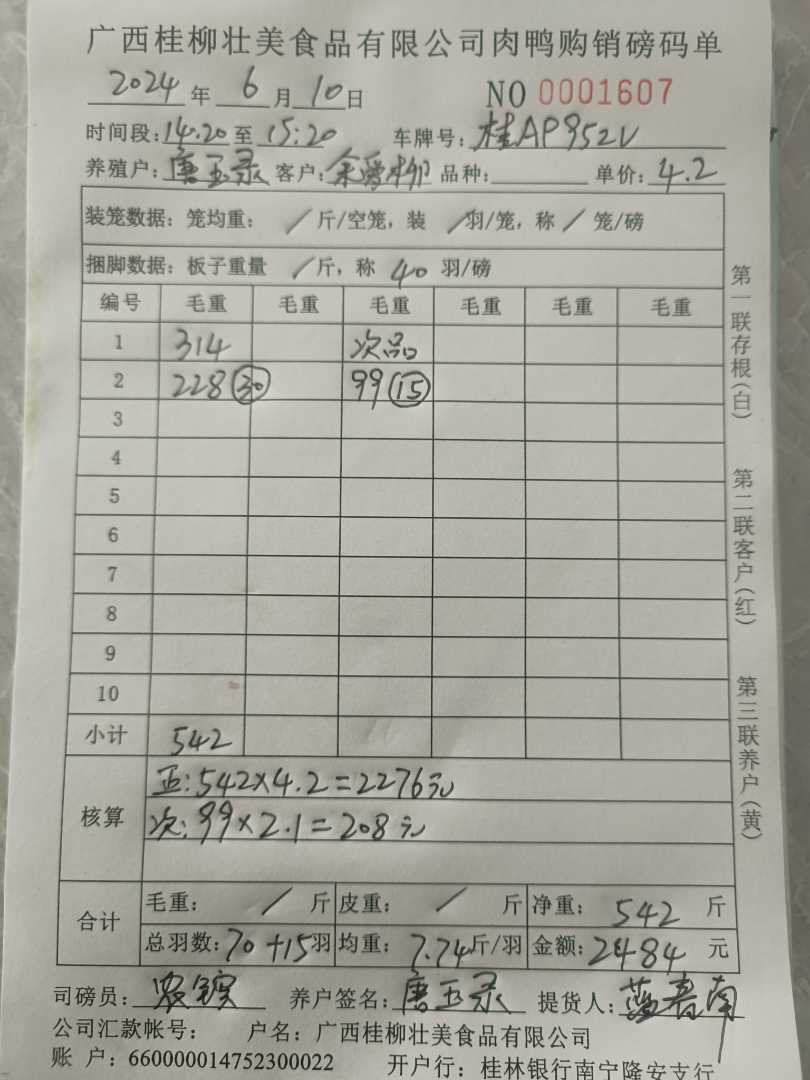 广西桂柳壮美食品有限公司肉鸭购销磅码单
2024年6月10日 NO 0001607
时间段:14.20至15:20 车牌号:桂AP952V
养殖户:唐玉录 客户:余爱柳 品种: 单价:4.2
装笼数据:笼均重: /斤/空笼,装 /羽/笼,称/笼/磅
捆脚数据:板子重量 /斤,称 40 羽/磅
编号 毛重 毛重 毛重 毛重 毛重 毛重
1 314 次品
2 228 30 99 15
3
4
5
6
7
8
9
10
小计 542
核算
正:542×4.2=2276元
次:99×2.1=208元
合计
毛重: / 斤 皮重: / 斤 净重: 542 斤
总羽数:70+15羽 均重:7.74斤/羽 金额:2484 元
司磅员: 养户签名:唐玉录 提货人:蓝春南
公司汇款帐号: 户名:广西桂柳壮美食品有限公司
账 户:660000014752300022 开户行:桂林银行南宁隆安支行
第一联存根(白)
第二联客户(红)
第三联养户(黄)